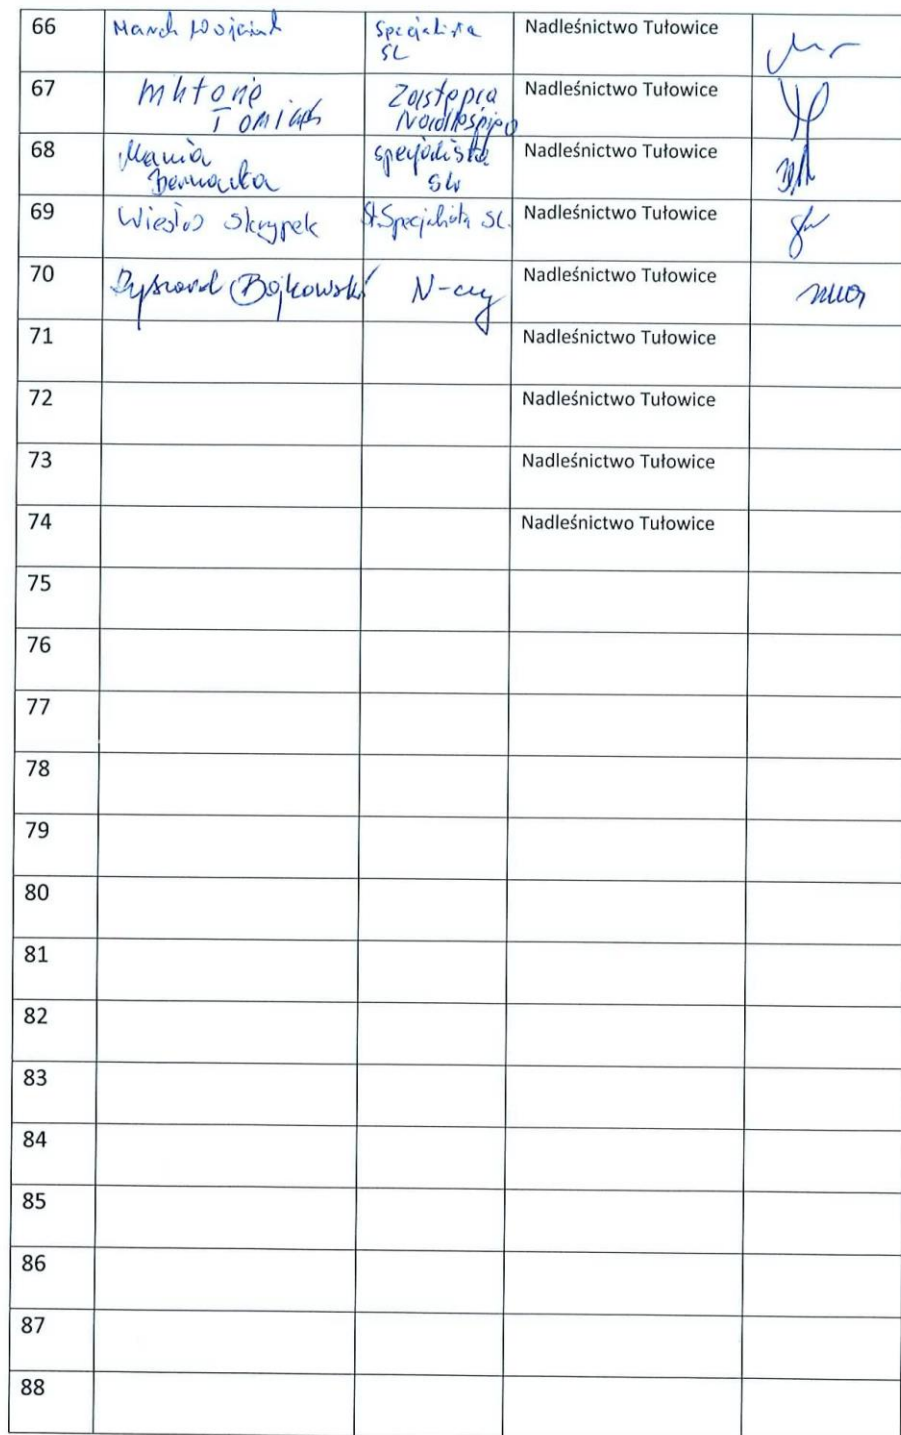 66 Marek Wojciuk Specjalista Nadleśnictwo Tułowice
SL
67 Zastępca Nadleśnictwo Tułowice
Tomiak Nadleśniczego
68 Maria specjalista Nadleśnictwo Tułowice
Bernacka SL
69 Wiesław Skrzypek St. Specjalista SL. Nadleśnictwo Tułowice
70 Ryszard Bojkowski N-czy Nadleśnictwo Tułowice
71 Nadleśnictwo Tułowice
72 Nadleśnictwo Tułowice
73 Nadleśnictwo Tułowice
74 Nadleśnictwo Tułowice
75
76
77
78
79
80
81
82
83
84
85
86
87
88